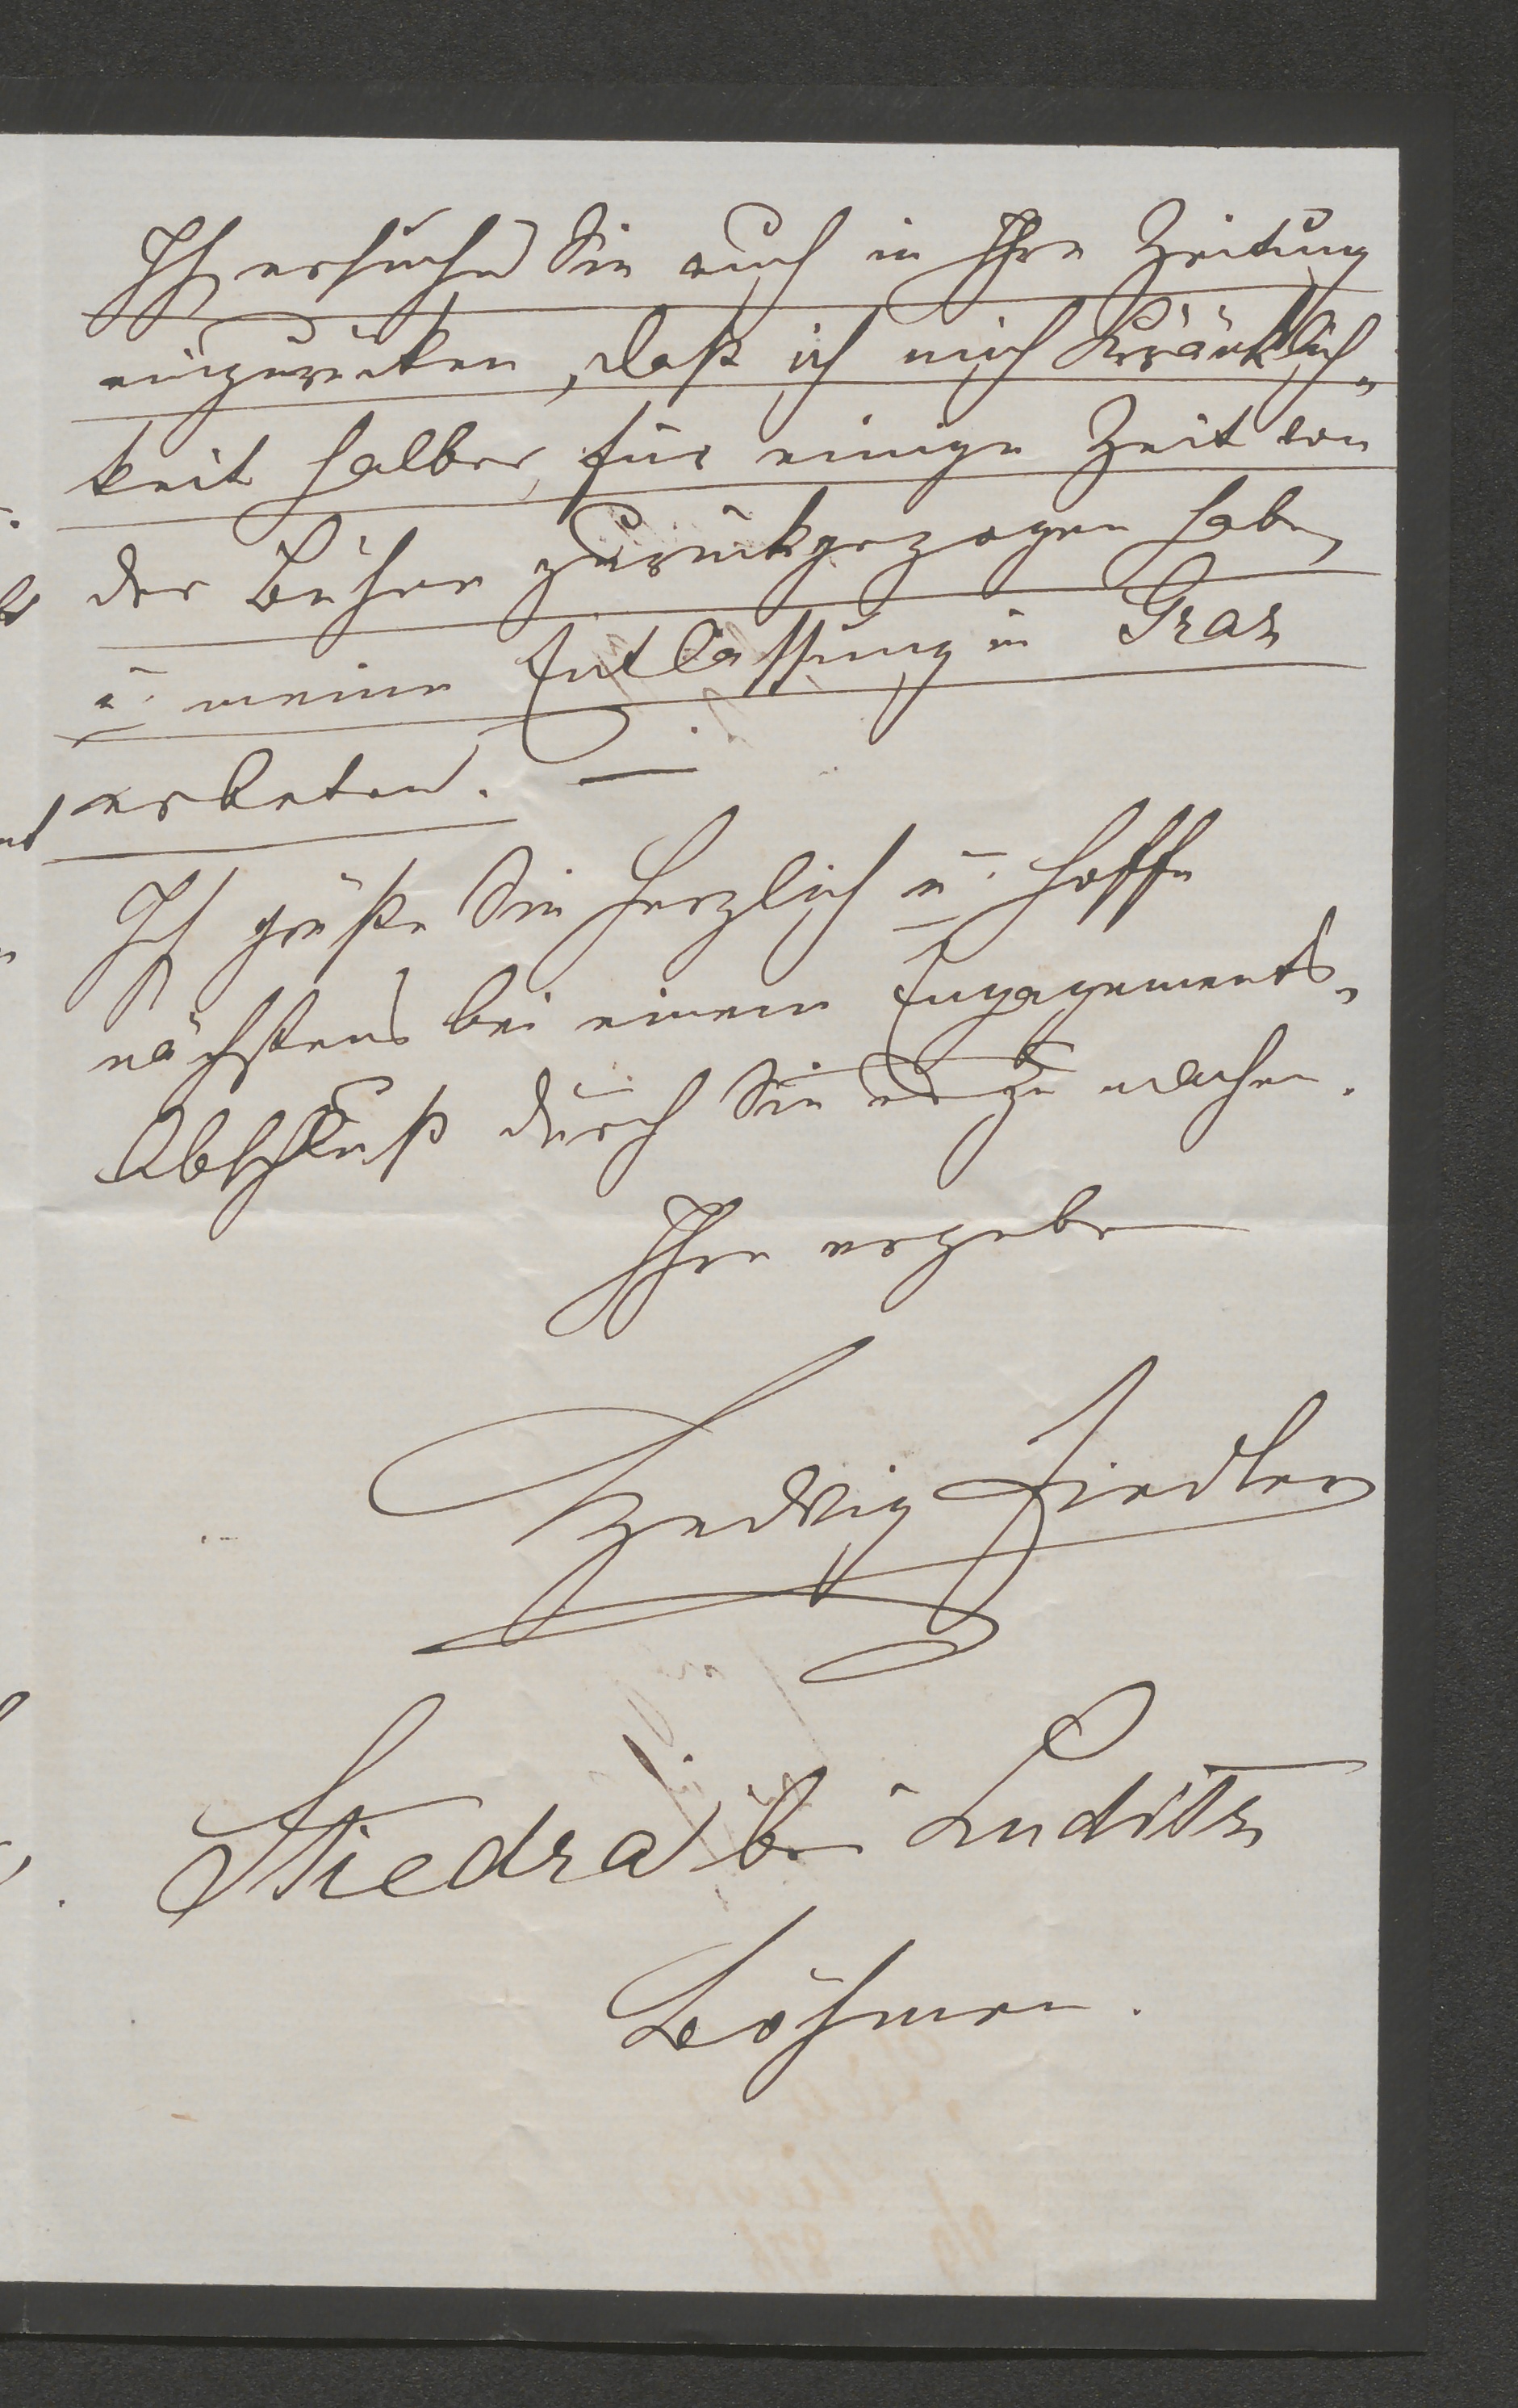 Ich ersuche Sie auch in Ihre Zeitung
einzurücken, daß ich mich Kränklich-
keit halber, für einige Zeit von
der Bühne zurückgezogen habe,
u. meine Entlassung in Graz
erbeten. —
Ich grüße Sie herzlich u. hoffe
nächstens bei einem Engagements-
Abschluß durch Sie es zu machen.
Ihre ergeben
Hedwig Fiedler
Stiedra bei Luditz
Böhmen.